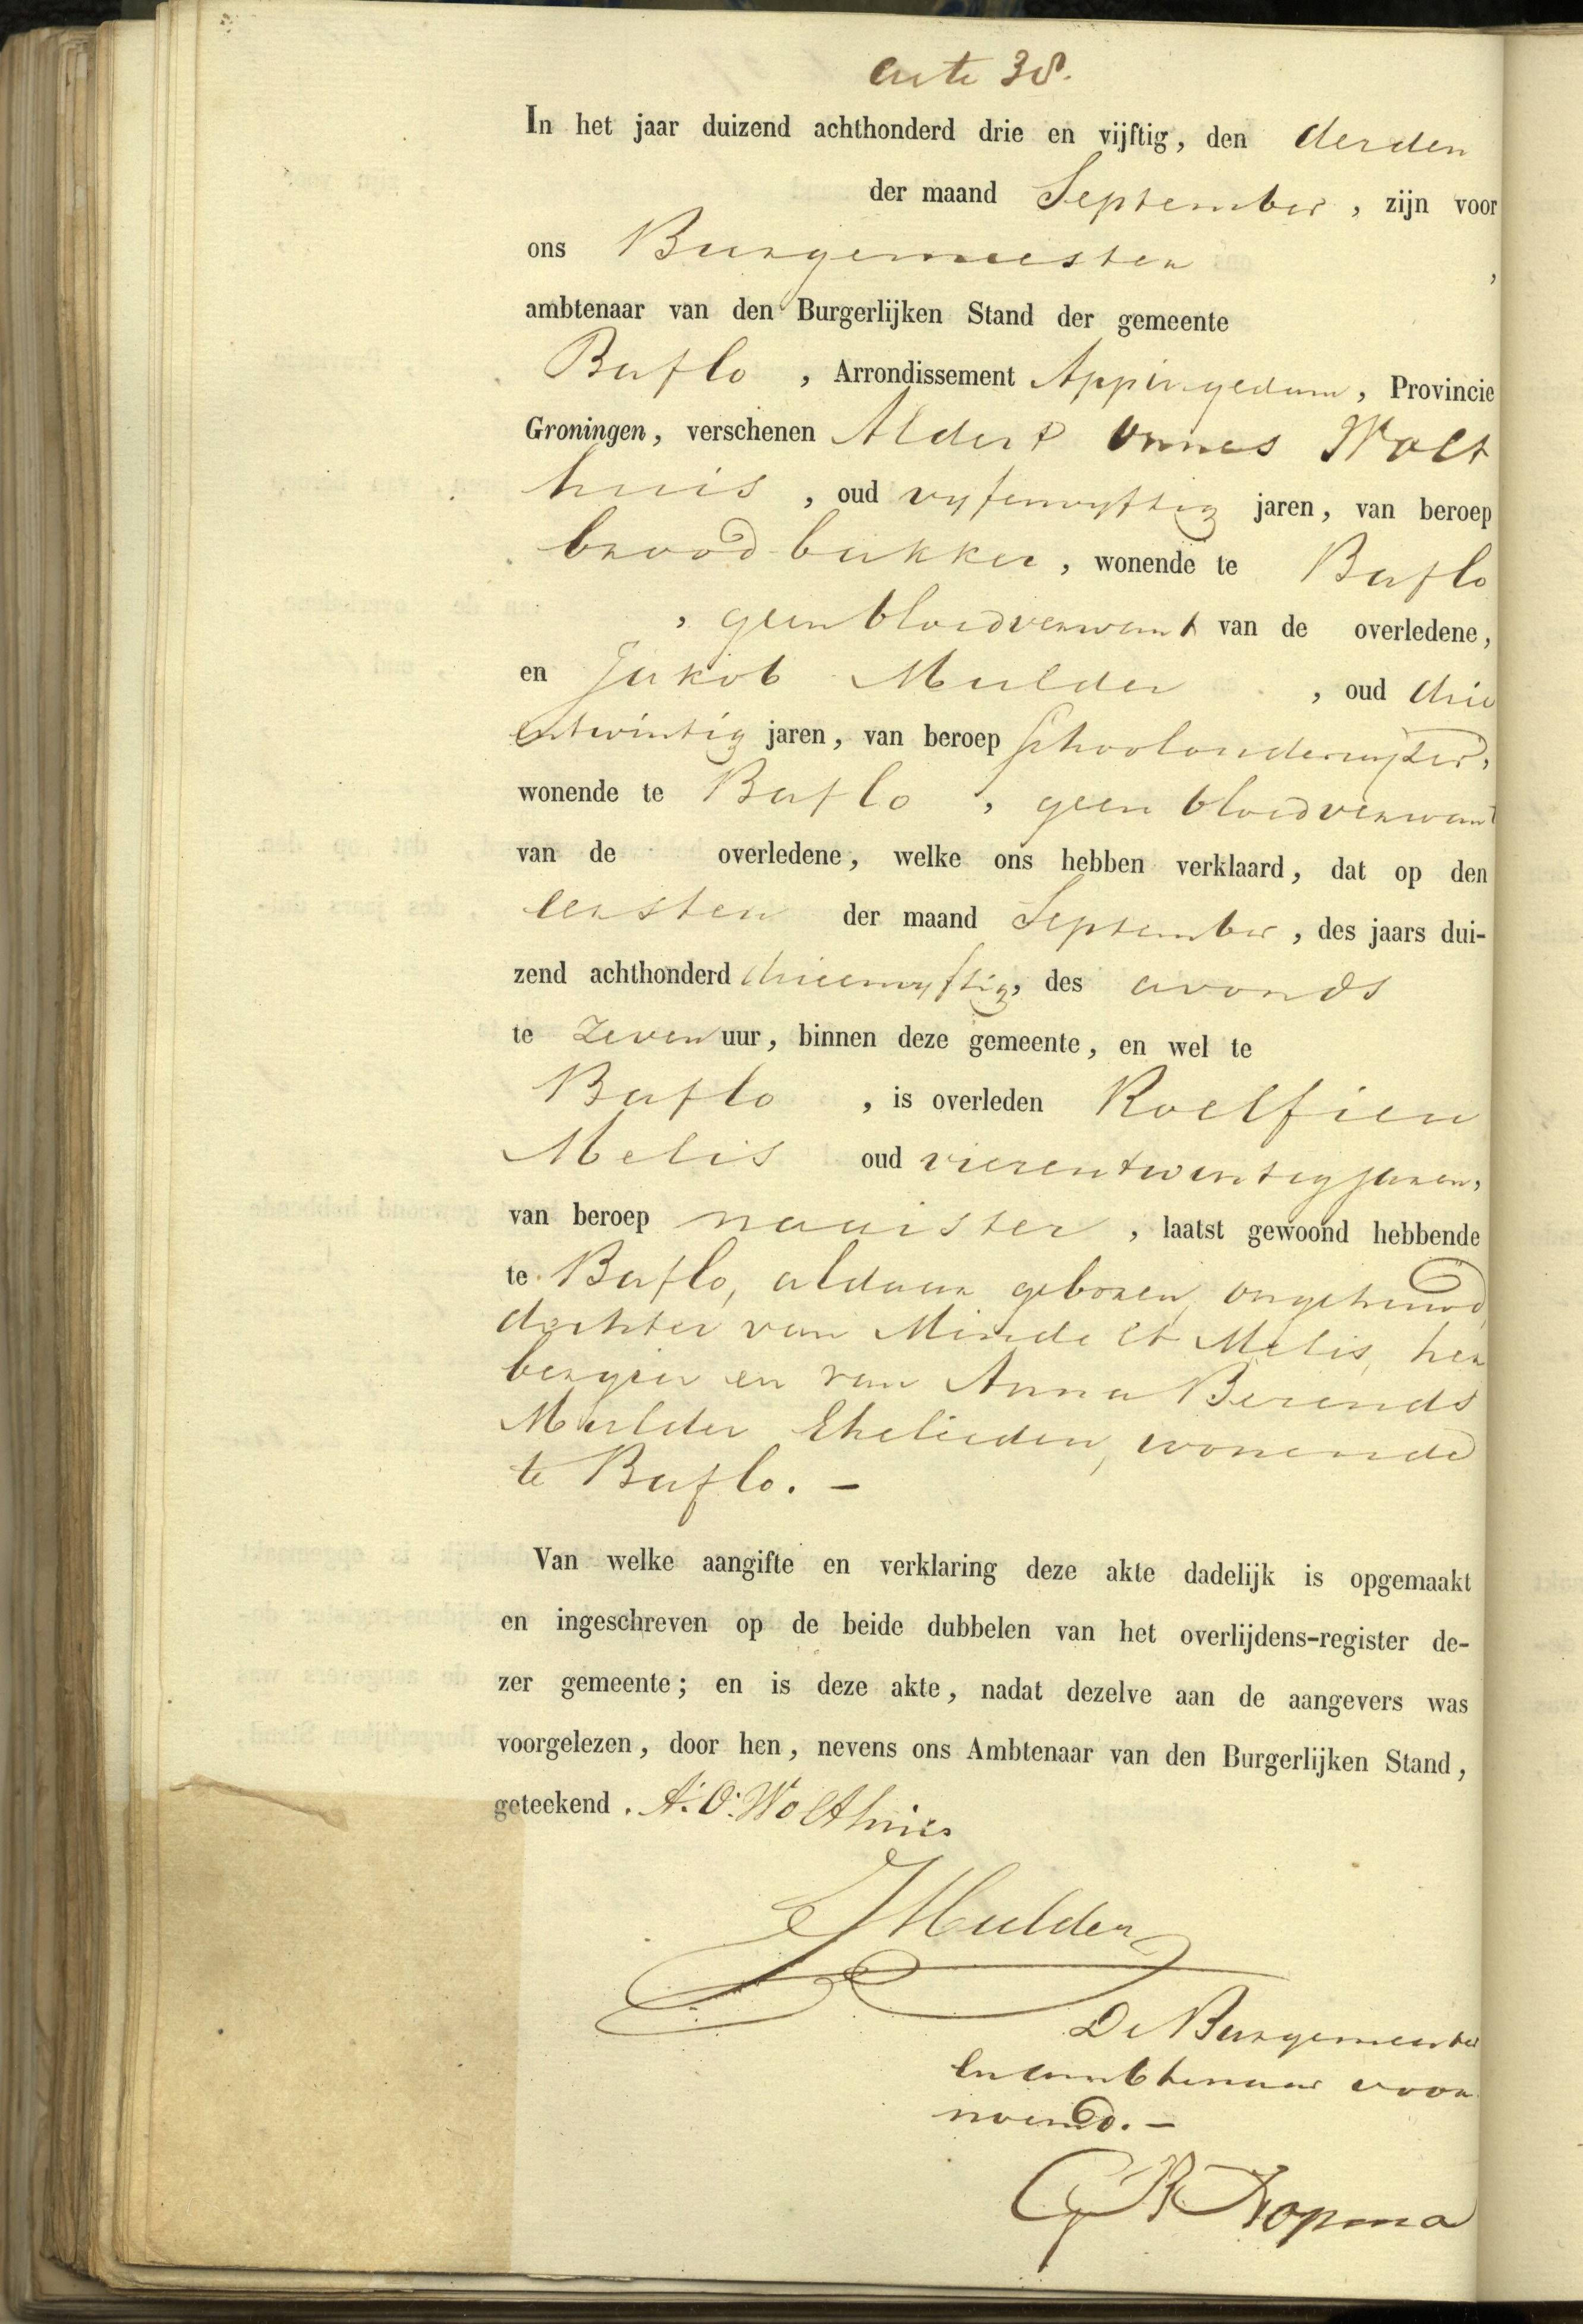 acte 38.
In het jaar duizend achthonderd drie en vijftig, den derden
der maand September, zijn voor
ons Burgemeester,
ambtenaar van den Burgerlijken Stand der gemeente
Baflo, Arrondissement Appingedam, Provincie
Groningen, verschenen Aldert Onnes Wolt
huis, oud vyfenvyftig jaren, van beroep
broodbakker, wonende te Baflo
, geen bloedverwant van de overledene,
en Jakob Mulder, oud drie
entwintig jaren, van beroep schoolonderwyzer,
wonende te Baflo, geen bloedverwant
van de overledene, welke ons hebben verklaard, dat op den
eersten der maand September, des jaars dui-
zend achthonderd drieenvyftig, des avonds
te zeven uur, binnen deze gemeente, en wel te
Baflo, is overleden Roelfien
Melis oud vierentwintig jaren,
van beroep naaister, laatst gewoond hebbende
te Baflo, aldaar geboren, ongehuwd,
dochter van Mindelt Melis, her
bergier en van Anna Berends
Mulder Ehelieden, wonende
te Baflo. -
Van welke aangifte en verklaring deze akte dadelijk is opgemaakt
en ingeschreven op de beide dubbelen van het overlijdens-register de-
zer gemeente; en is deze akte, nadat dezelve aan de aangevers was
voorgelezen, door hen, nevens ons Ambtenaar van den Burgerlijken Stand,
geteekend. A. O. Wolthuis
J Mulder
De Burgemeester
en ambtenaar voor
noemd. -
Dopma